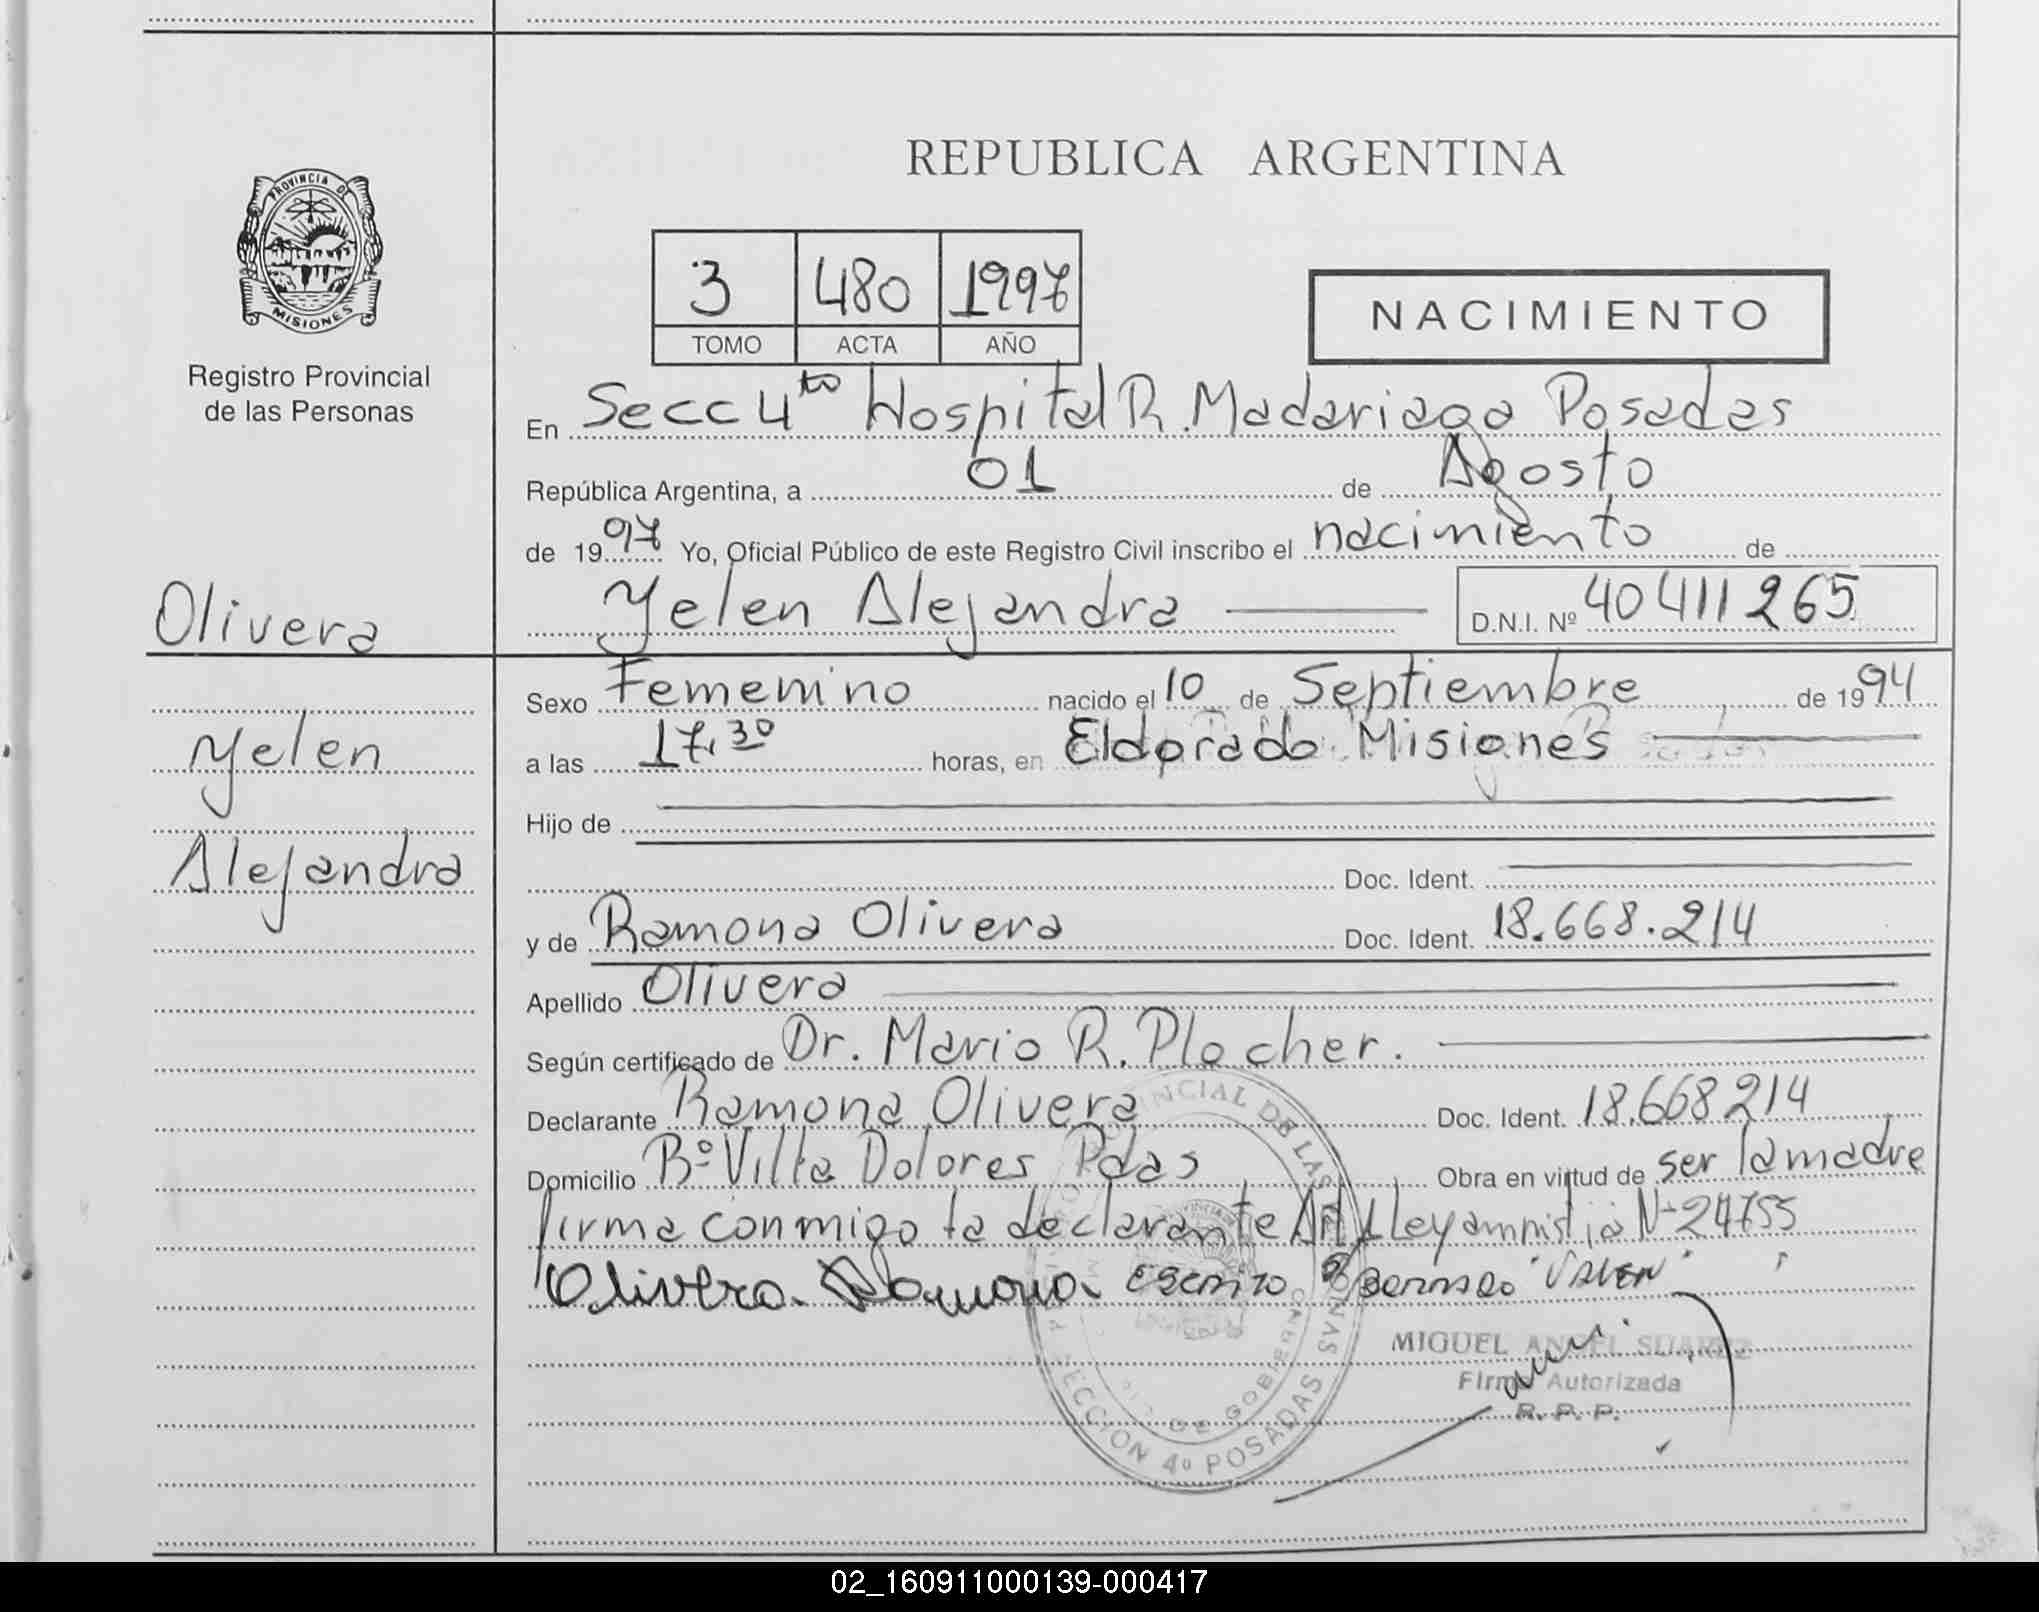 REPUBLICA ARGENTINA
PROVINCIA DE
MISIONES
Registro Provincial
de las Personas
3 480 1997
TOMO ACTA AÑO
NACIMIENTO
En Secc 4to Hospital R. Madariaga Posadas
República Argentina, a 01 de Agosto
de 1997 Yo, Oficial Público de este Registro Civil inscribo el nacimiento de
Yelen Alejandra D.N.I. Nº 40411265
Olivera
Yelen
Alejandra
Sexo Femenino nacido el 10 de Septiembre de 1994
a las 17,30 horas, en Eldorado Misiones
Hijo de
Doc. Ident.
y de Ramona Olivera Doc. Ident. 18.668.214
Apellido Olivera
Según certificado de Dr. Mario R. Plocher.
Declarante Ramona Olivera Doc. Ident. 18.668214
Domicilio Bº Villa Dolores Pdas Obra en virtud de ser la madre
firma conmigo la declarante ley amnistia Nº 24755
Olivera Ramona Escrito s/borrado "Valen"
MIGUEL ANGEL SUAREZ
Firma Autorizada
R. P. P.
PROVINCIAL DE LAS PERSONAS
DE GOBIERNO
SECCION 4º POSADAS
02_160911000139-000417